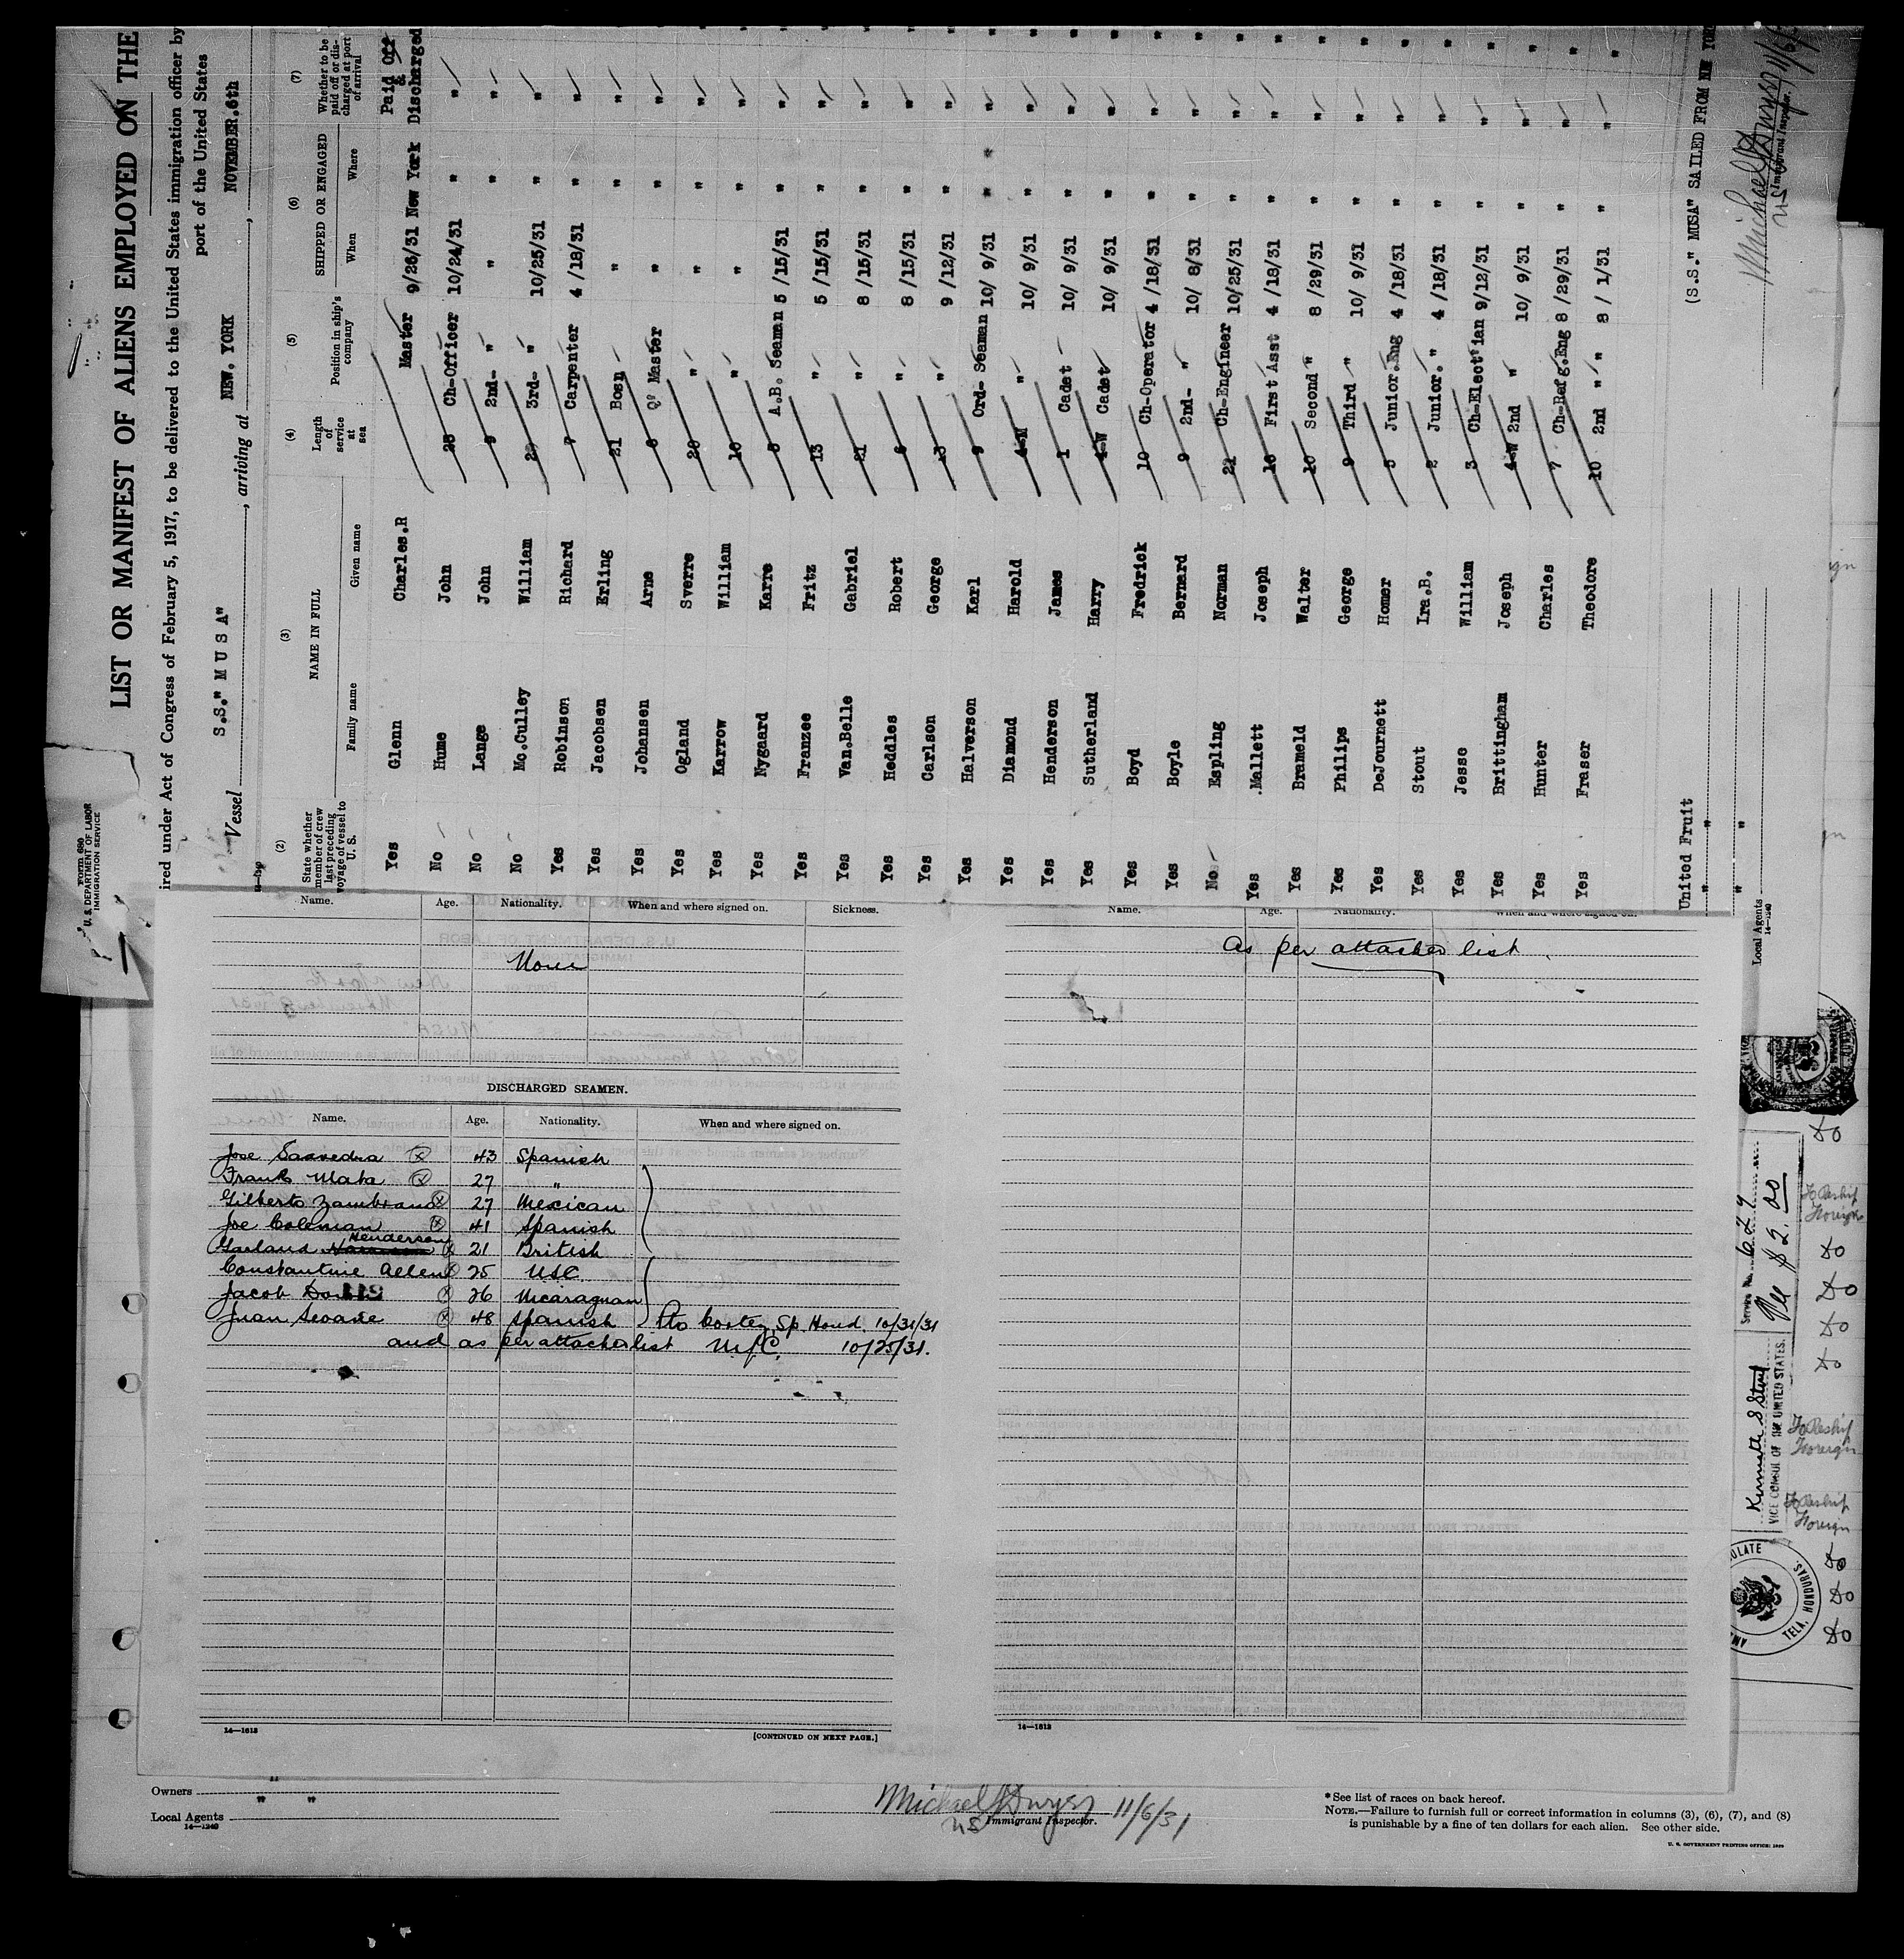 Form 680
U. S. DEPARTMENT OF LABOR
IMMIGRATION SERVICE
LIST OR MANIFEST OF ALIENS EMPLOYED ON THE
ired under Act of Congress of February 5, 1917, to be delivered to the United States immigration officer by
port of the United States
Vessel S.S." M U S A" , arriving at NEW. YORK , NOVEMBER.6th
(2) (3) (4) (5) (6) (7)
State whether member of crew last preceding voyage of vessel to U. S. NAME IN FULL Length of service at sea Position in ship's company SHIPPED OR ENGAGED Whether to be paid off or discharged at port of arrival
Family name Given name When Where
Yes Glenn Charles.R Master 9/26/31 New York Paid Off & Discharged
No Hume John 28 Ch-Officer 10/24/31 " "
No Lange John 9 2nd- " " " "
No Mc.Culley William 3rd- " 10/25/31 " "
Yes Robinson Richard 7 Carpenter 4 /18/31 " "
Yes Jacobsen Erling 21 Bosn " " "
Yes Johansen Arne 6 Qr Master " " "
Yes Ogland Sverre 20 " " " "
Yes Karrow William 10 " " " "
Yes Nygaard Karre A.B. Seaman 5 /15/31 " "
Yes Franzee Fritz 13 " 5 /15/31 " "
Yes Van.Belle Gabriel 21 " 8 /15/31 " "
Yes Heddles Robert 6 " 8 /15/31 " "
Yes Carlson George 13 " 9 /12/31 " "
Yes Halverson Karl 9 Ord- Seaman 10/ 9/31 " "
Yes Diamond Harold 4-M " 10/ 9/31 " "
Yes Henderson James 1 Cadet 10/ 9/31 " "
Yes Sutherland Harry 4-W Cadet 10/ 9/31 " "
Yes Boyd Fredrick 10 Ch-Operator 4 /18/31 " "
Yes Boyle Bernard 9 2nd- " 10/ 8/31 " "
No Espling Norman 21 Ch-Engineer 10/25/31 " "
Yes .Mallett Joseph 16 First Asst 4 /18/31 " "
Yes Brameld Walter 10 Second " 8 /29/31 " "
Yes Philips George 9 Third " 10/ 9/31 " "
Yes DeJournett Homer Junior.Eng 4 /18/31 " "
Yes Stout Ira.B. 2 Junior. " 4 /18/31 " "
Yes Jesse William 3 Ch-Elect'ian 9/12/31 " "
Yes Brittingham Joseph 4-W 2nd " 10/ 9/31 " "
Yes Hunter Charles 7 Ch-Refg.Eng 8 /29/31 " "
Yes Fraser Theodore 10 2nd " " 8 / 1/31 " "
United Fruit
" "
" "
Local Agents
14—1240
(S.S." MUSA" SAILED FROM NEW YORK
Michael J Dwyer 11/6/
US Immigrant Inspector.
Name. Age. Nationality. When and where signed on. Sickness.
None
DISCHARGED SEAMEN.
Name. Age. Nationality. When and where signed on.
Jose Saavedra 43 Spanish
Frank Mata 27 "
Gilberto Zambrano 27 Mexican
Joe Coleman 41 Spanish
Henderson
Garland 21 British
Constantine Allen 25 USC
Jacob 26 Nicaraguan
Juan Seoane 48 Spanish Pto Cortez, Sp. Hond. 10/31/31
and as per attached list N.Y.C. 10/25/31.
14—1613
[CONTINUED ON NEXT PAGE.]
Name. Age. Nationality. When and where signed on.
As per attached list.
14—1613
Service No. 629
Fee $2.00
Kenneth S Stout
VICE CONSUL OF THE UNITED STATES.
TELA, HONDURAS.
Do
To Reship
Foreign
Do
Do
Do
Do
To Reship
Foreign
To Reship
Foreign
Do
Do
Do
Owners
" "
Local Agents
14—1240
Michael J Dwyer 11/6/31
US Immigrant Inspector.
*See list of races on back hereof.
NOTE.—Failure to furnish full or correct information in columns (3), (6), (7), and (8)
is punishable by a fine of ten dollars for each alien. See other side.
U. S. GOVERNMENT PRINTING OFFICE: 1929